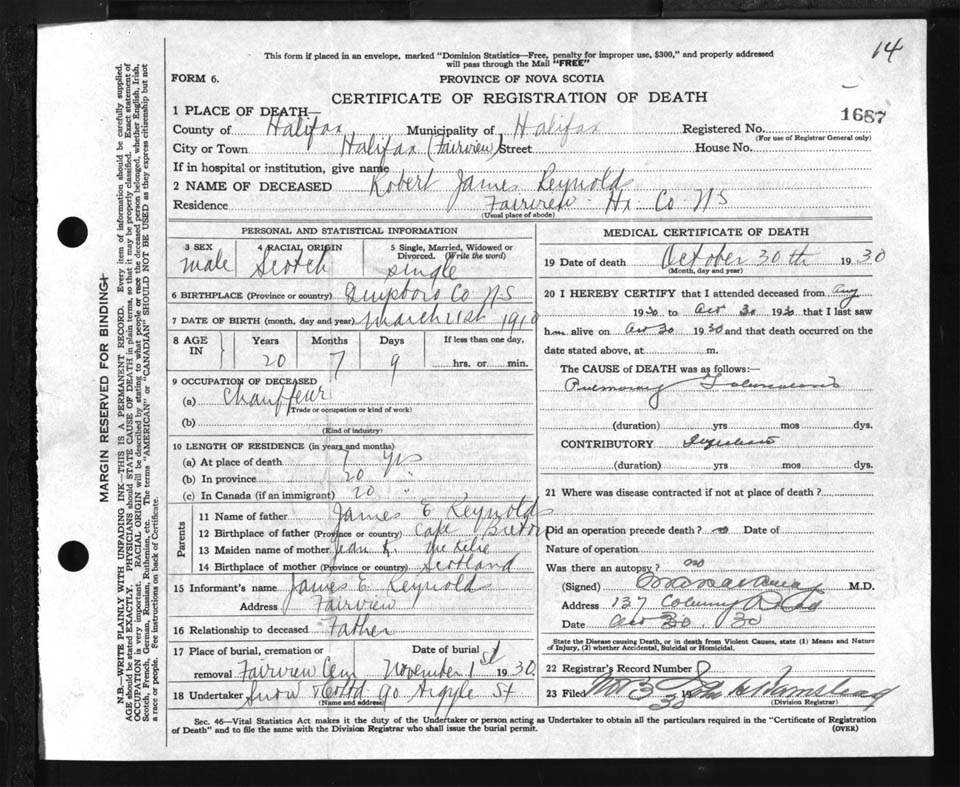 14
This form if placed in an envelope, marked "Dominion Statistics—Free, penalty for improper use, $300," and properly addressed
will pass through the Mail "FREE"
FORM 6.
PROVINCE OF NOVA SCOTIA
CERTIFICATE OF REGISTRATION OF DEATH
1687
1 PLACE OF DEATH—
County of Halifax Municipality of Halifax Registered No.
(For use of Registrar General only)
City or Town Halifax (Fairview) Street House No.
If in hospital or institution, give name
2 NAME OF DECEASED Robert James Reynolds
Residence Fairview Hx Co NS
(Usual place of abode)
PERSONAL AND STATISTICAL INFORMATION
3 SEX 4 RACIAL ORIGIN 5 Single, Married, Widowed or Divorced. (Write the word)
male Scotch single
6 BIRTHPLACE (Province or country) Co NS
7 DATE OF BIRTH (month, day and year) March 21st 1910
8 AGE IN Years Months Days If less than one day,
20 7 9 hrs. or min.
9 OCCUPATION OF DECEASED
(a) Chauffeur
(Trade or occupation or kind of work)
(b)
(Kind of industry)
10 LENGTH OF RESIDENCE (in years and months)
(a) At place of death
(b) In province 20 "
(c) In Canada (if an immigrant) 20 "
Parents
11 Name of father James E Reynolds
12 Birthplace of father (Province or country) Cape Breton
13 Maiden name of mother Jean K.
14 Birthplace of mother (Province or country) Scotland
15 Informant's name James E Reynolds
Address Fairview
16 Relationship to deceased Father
17 Place of burial, cremation or removal Date of burial
Fairview Cem November 1st 1930
18 Undertaker Snow & Co Ltd 90 Argyle St
(Name and address)
MEDICAL CERTIFICATE OF DEATH
19 Date of death October 30th 1930
(Month, day and year)
20 I HEREBY CERTIFY that I attended deceased from Aug
1930 to Oct 30 1930 that I last saw
him alive on Oct 30 1930 and that death occurred on
date stated above, at m.
The CAUSE of DEATH was as follows:—
Pulmonary Tuberculosis
(duration) yrs mos dys.
CONTRIBUTORY
(duration) yrs mos dys.
21 Where was disease contracted if not at place of death?
Did an operation precede death? no Date of
Nature of operation
Was there an autopsy? no
(Signed) M.D.
Address 137
Date Oct 30. 30
State the Disease causing Death, or in death from Violent Causes, state (1) Means and Nature
of Injury, (2) whether Accidental, Suicidal or Homicidal.
22 Registrar's Record Number
23 Filed
(Division Registrar)
Sec. 46—Vital Statistics Act makes it the duty of the Undertaker or person acting as Undertaker to obtain all the particulars required in the "Certificate of Registration
of Death" and to file the same with the Division Registrar who shall issue the burial permit.
(OVER)
MARGIN RESERVED FOR BINDING
N.B.—WRITE PLAINLY WITH UNFADING INK—THIS IS A PERMANENT RECORD. Every item of information should be carefully supplied.
AGE should be stated EXACTLY. PHYSICIANS should STATE CAUSE OF DEATH in plain terms, so that it may be properly classified. Exact statement of
OCCUPATION is very important. RACIAL ORIGIN will be described by stating to what people or race the deceased person belonged, whether English, Irish,
Scotch, French, German, Russian, Ruthenian, etc. The terms "AMERICAN" or "CANADIAN" SHOULD NOT BE USED as they express citizenship but not
a race or people. See instructions on back of Certificate.